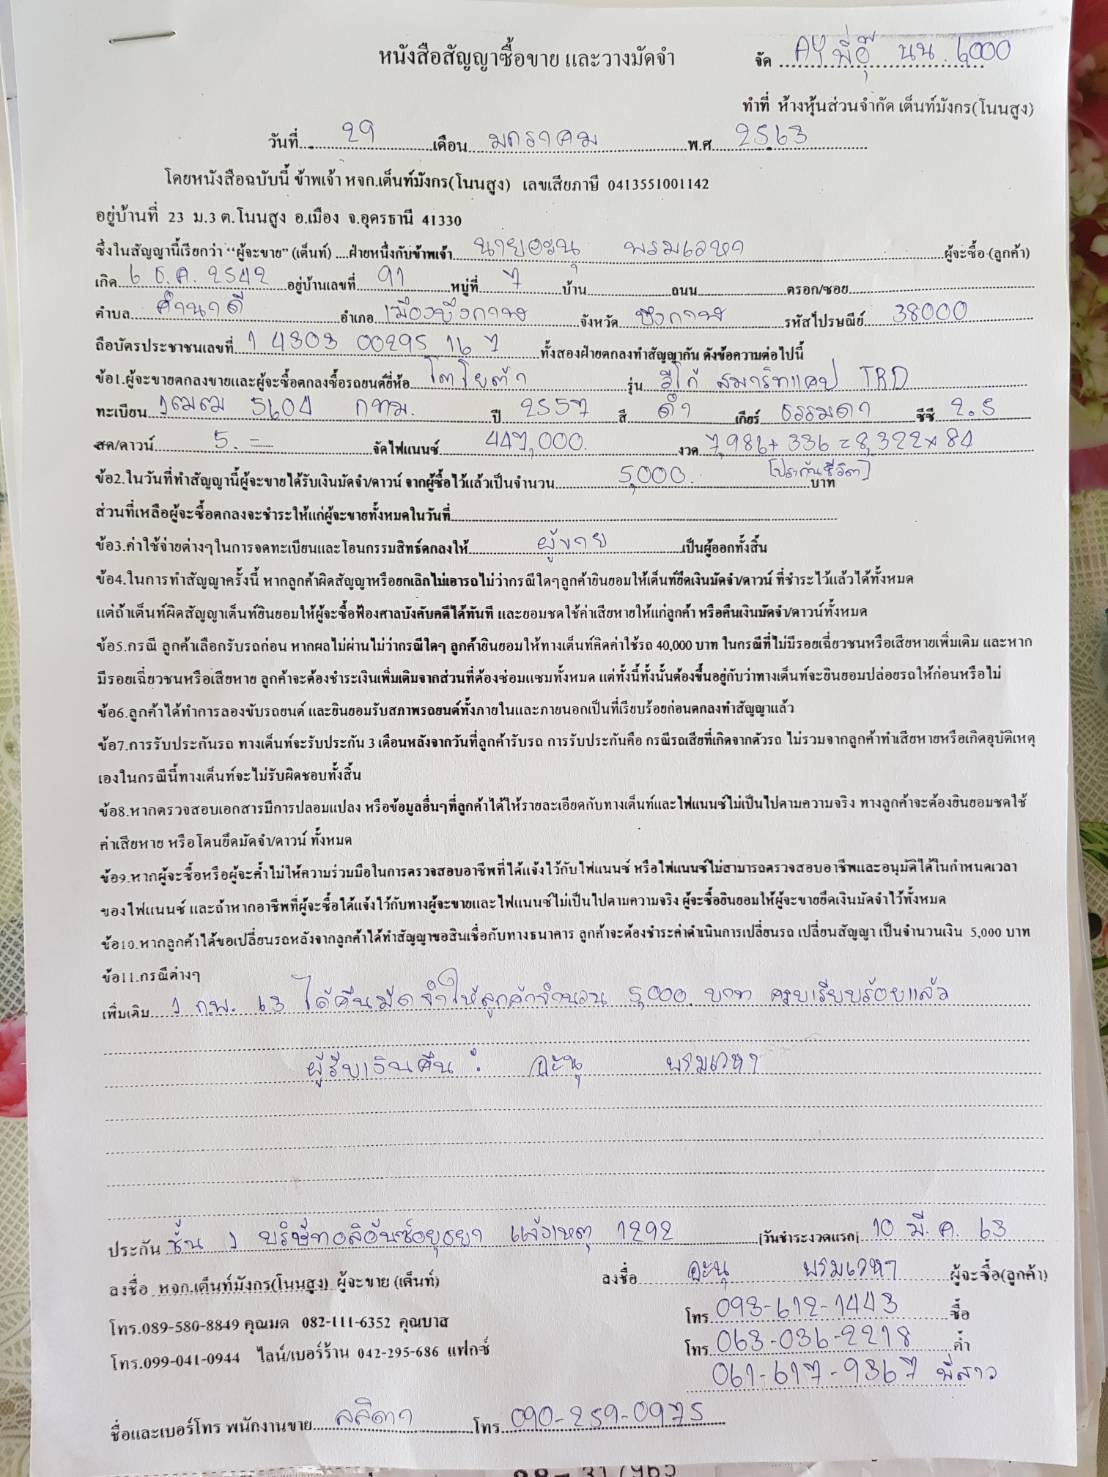 หนังสือสัญญาซื้อขาย และวางมัดจำ
จัด AY พี่อุ๊ นน. 6000
ทำที่ ห้างหุ้นส่วนจำกัด เต็นท์มังกร(โนนสูง)
วันที่ 29 เดือน มกราคม พ.ศ 2563
โดยหนังสือฉบับนี้ ข้าพเจ้า หจก.เต็นท์มังกร(โนนสูง) เลขเสียภาษี 0413551001142
อยู่บ้านที่ 23 ม.3 ต.โนนสูง อ.เมือง จ.อุดรธานี 41330
ซึ่งในสัญญานี้เรียกว่า "ผู้จะขาย" (เต็นท์) ....ฝ่ายหนึ่งกับข้าพเจ้า นายอะนุ พรมเวหา ผู้จะซื้อ (ลูกค้า)
เกิด 6 ธ.ค. 2542 อยู่บ้านเลขที่ 91 หมู่ที่ 7 บ้าน ถนน ตรอก/ซอย
ตำบล คำนาดี อำเภอ เมืองบึงกาฬ จังหวัด บึงกาฬ รหัสไปรษณีย์ 38000
ถือบัตรประชาชนเลขที่ 1 4303 00295 16 7 ทั้งสองฝ่ายตกลงทำสัญญากัน ดังข้อความต่อไปนี้
ข้อ1.ผู้จะขายตกลงขายและผู้จะซื้อตกลงซื้อรถยนต์ยี่ห้อ โตโยต้า รุ่น วีโก้ สมาร์ทแคป TRD
ทะเบียน 1ฒฒ 5604 กทม. ปี 2557 สี ดำ เกียร์ ธรรมดา ซีซี 2.5
สด/ดาวน์ 5.- จัดไฟแนนซ์ 447,000. งวด 7,986+336=8,322x84
[ประกันชีวิต]
ข้อ2.ในวันที่ทำสัญญานี้ผู้จะขายได้รับเงินมัดจำ/ดาวน์ จากผู้ซื้อไว้แล้วเป็นจำนวน 5,000. บาท
ส่วนที่เหลือผู้จะซื้อตกลงจะชำระให้แก่ผู้จะขายทั้งหมดในวันที่
ข้อ3.ค่าใช้จ่ายต่างๆในการจดทะเบียนและโอนกรรมสิทธ์ตกลงให้ ผู้ขาย เป็นผู้ออกทั้งสิ้น
ข้อ4.ในการทำสัญญาครั้งนี้ หากลูกค้าผิดสัญญาหรือยกเลิกไม่เอารถไม่ว่ากรณีใดๆลูกค้ายินยอมให้เต็นท์ยึดเงินมัดจำ/ดาวน์ ที่ชำระไว้แล้วได้ทั้งหมด
แต่ถ้าเต็นท์ผิดสัญญาเต็นท์ยินยอมให้ผู้จะซื้อฟ้องศาลบังคับคดีได้ทันที และยอมชดใช้ค่าเสียหายให้แก่ลูกค้า หรือคืนเงินมัดจำ/ดาวน์ทั้งหมด
ข้อ5.กรณี ลูกค้าเลือกรับรถก่อน หากผลไม่ผ่านไม่ว่ากรณีใดๆ ลูกค้ายินยอมให้ทางเต็นท์คิดค่าใช้รถ 40,000 บาท ในกรณีที่ไม่มีรอยเฉี่ยวชนหรือเสียหายเพิ่มเติม และหาก
มีรอยเฉี่ยวชนหรือเสียหาย ลูกค้าจะต้องชำระเงินเพิ่มเติมจากส่วนที่ต้องซ่อมแซมทั้งหมด แต่ทั้งนี้ทั้งนั้นต้องขึ้นอยู่กับว่าทางเต็นท์จะยินยอมปล่อยรถให้ก่อนหรือไม่
ข้อ6.ลูกค้าได้ทำการลองขับรถยนต์ และยินยอมรับสภาพรถยนต์ทั้งภายในและภายนอกเป็นที่เรียบร้อยก่อนตกลงทำสัญญาแล้ว
ข้อ7.การรับประกันรถ ทางเต็นท์จะรับประกัน 3 เดือนหลังจากวันที่ลูกค้ารับรถ การรับประกันคือ กรณีรถเสียที่เกิดจากตัวรถ ไม่รวมจากลูกค้าทำเสียหายหรือเกิดอุบัติเหตุ
เองในกรณีนี้ทางเต็นท์จะไม่รับผิดชอบทั้งสิ้น
ข้อ8.หากตรวจสอบเอกสารมีการปลอมแปลง หรือข้อมูลอื่นๆที่ลูกค้าได้ให้รายละเอียดกับทางเต็นท์และไฟแนนซ์ไม่เป็นไปตามความจริง ทางลูกค้าจะต้องยินยอมชดใช้
ค่าเสียหาย หรือโดนยึดมัดจำ/ดาวน์ ทั้งหมด
ข้อ9.หากผู้จะซื้อหรือผู้จะค้ำไม่ให้ความร่วมมือในการตรวจสอบอาชีพที่ได้แจ้งไว้กับไฟแนนซ์ หรือไฟแนนซ์ไม่สามารถตรวจสอบอาชีพและอนุมัติได้ในกำหนดเวลา
ของไฟแนนซ์ และถ้าหากอาชีพที่ผู้จะซื้อได้แจ้งไว้กับทางผู้จะขายและไฟแนนซ์ไม่เป็นไปตามความจริง ผู้จะซื้อยินยอมให้ผู้จะขายยึดเงินมัดจำไว้ทั้งหมด
ข้อ10.หากลูกค้าได้ขอเปลี่ยนรถหลังจากลูกค้าได้ทำสัญญาขอสินเชื่อกับทางธนาคาร ลูกค้าจะต้องชำระค่าดำเนินการเปลี่ยนรถ เปลี่ยนสัญญา เป็นจำนวนเงิน 5,000 บาท
ข้อ11.กรณีต่างๆ
เพิ่มเติม 1 ก.พ. 63 ได้คืนมัดจำให้ลูกค้าจำนวน 5,000. บาท ครบเรียบร้อยแล้ว
ผู้รับเงินคืน : อะนุ พรมเวหา
ประกัน ชั้น 1 บริษัทอลิอันซ์อยุธยา แจ้งเหตุ 1292 [วันชำระงวดแรก] 10 มี.ค. 63
ลงชื่อ หจก.เต็นท์มังกร(โนนสูง) ผู้จะขาย (เต็นท์) ลงชื่อ อะนุ พรมเวหา ผู้จะซื้อ(ลูกค้า)
โทร.089-580-8849 คุณมด 082-111-6352 คุณบาส โทร 093-612-1443 ซื้อ
โทร.099-041-0944 ไลน์/เบอร์ร้าน 042-295-686 แฟกซ์ โทร 063-036-2218 ค้ำ
061-617-9367 พี่สาว
ชื่อและเบอร์โทร พนักงานขาย ลลิตา โทร 090-259-0975